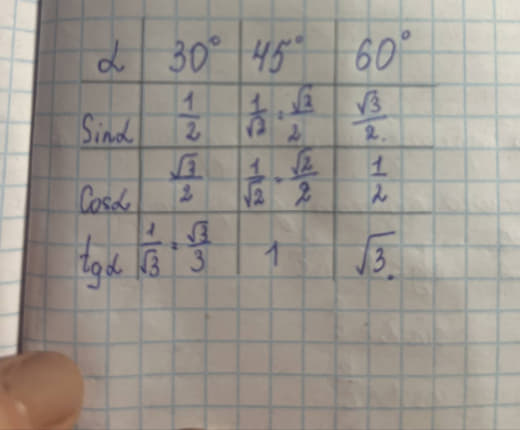 α 30° 45° 60°
Sinα 1/2 1/√2 = √2/2 √3/2.
Cosα √3/2 1/√2 = √2/2 1/2
tgα 1/√3 = √3/3 1 √3.